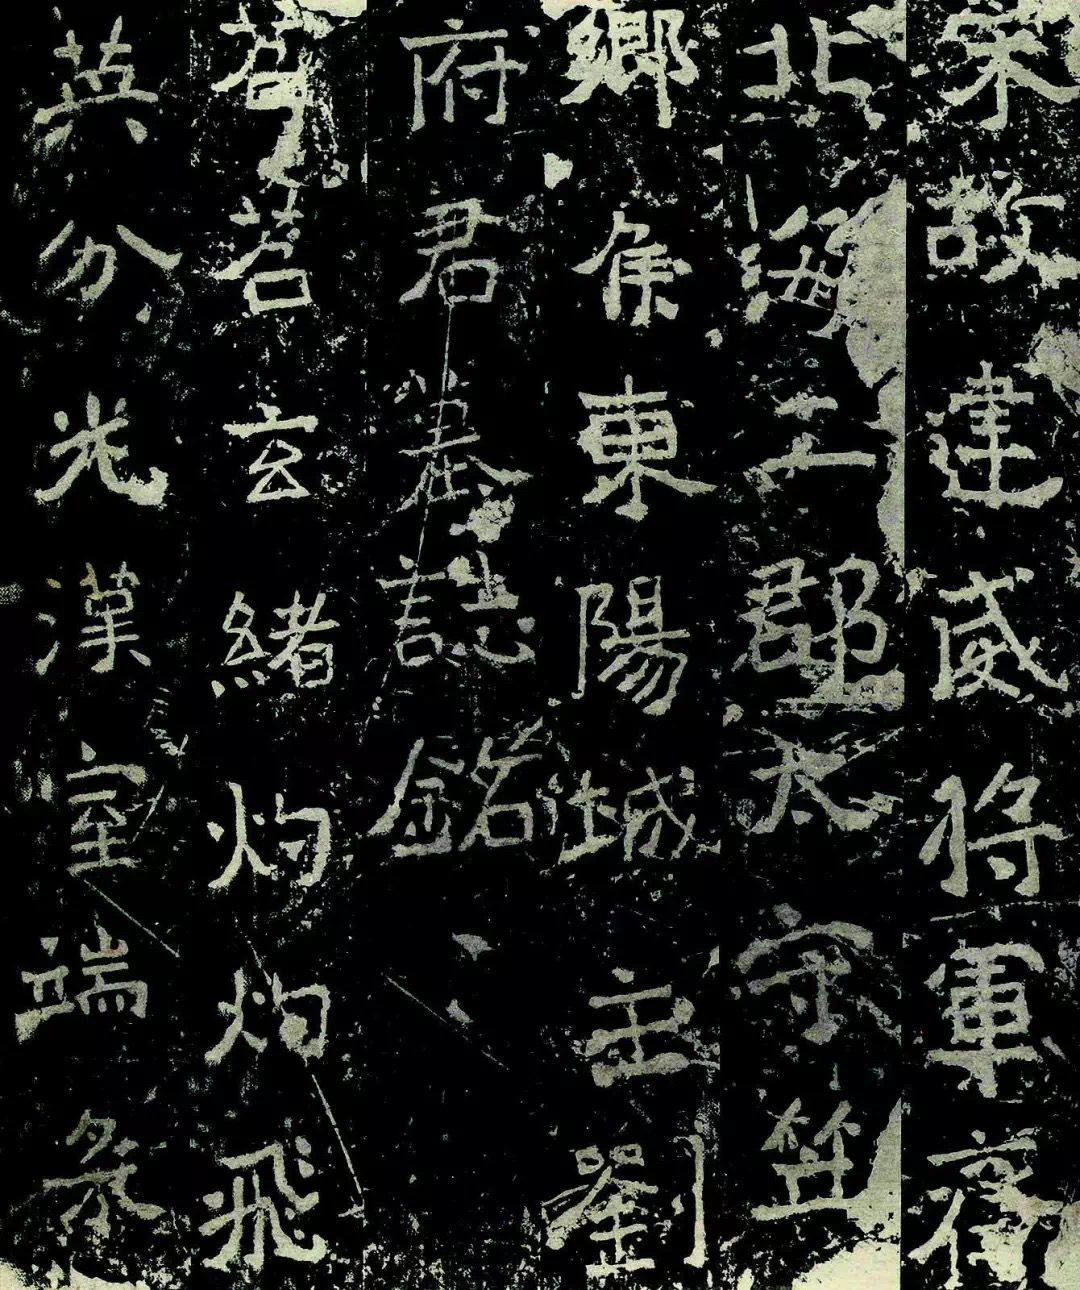 宋故建威將軍齊
北海二郡太守笠
鄉侯東陽城主劉
府君墓誌銘
苕苕玄緒灼灼飛
英分光漢室端采